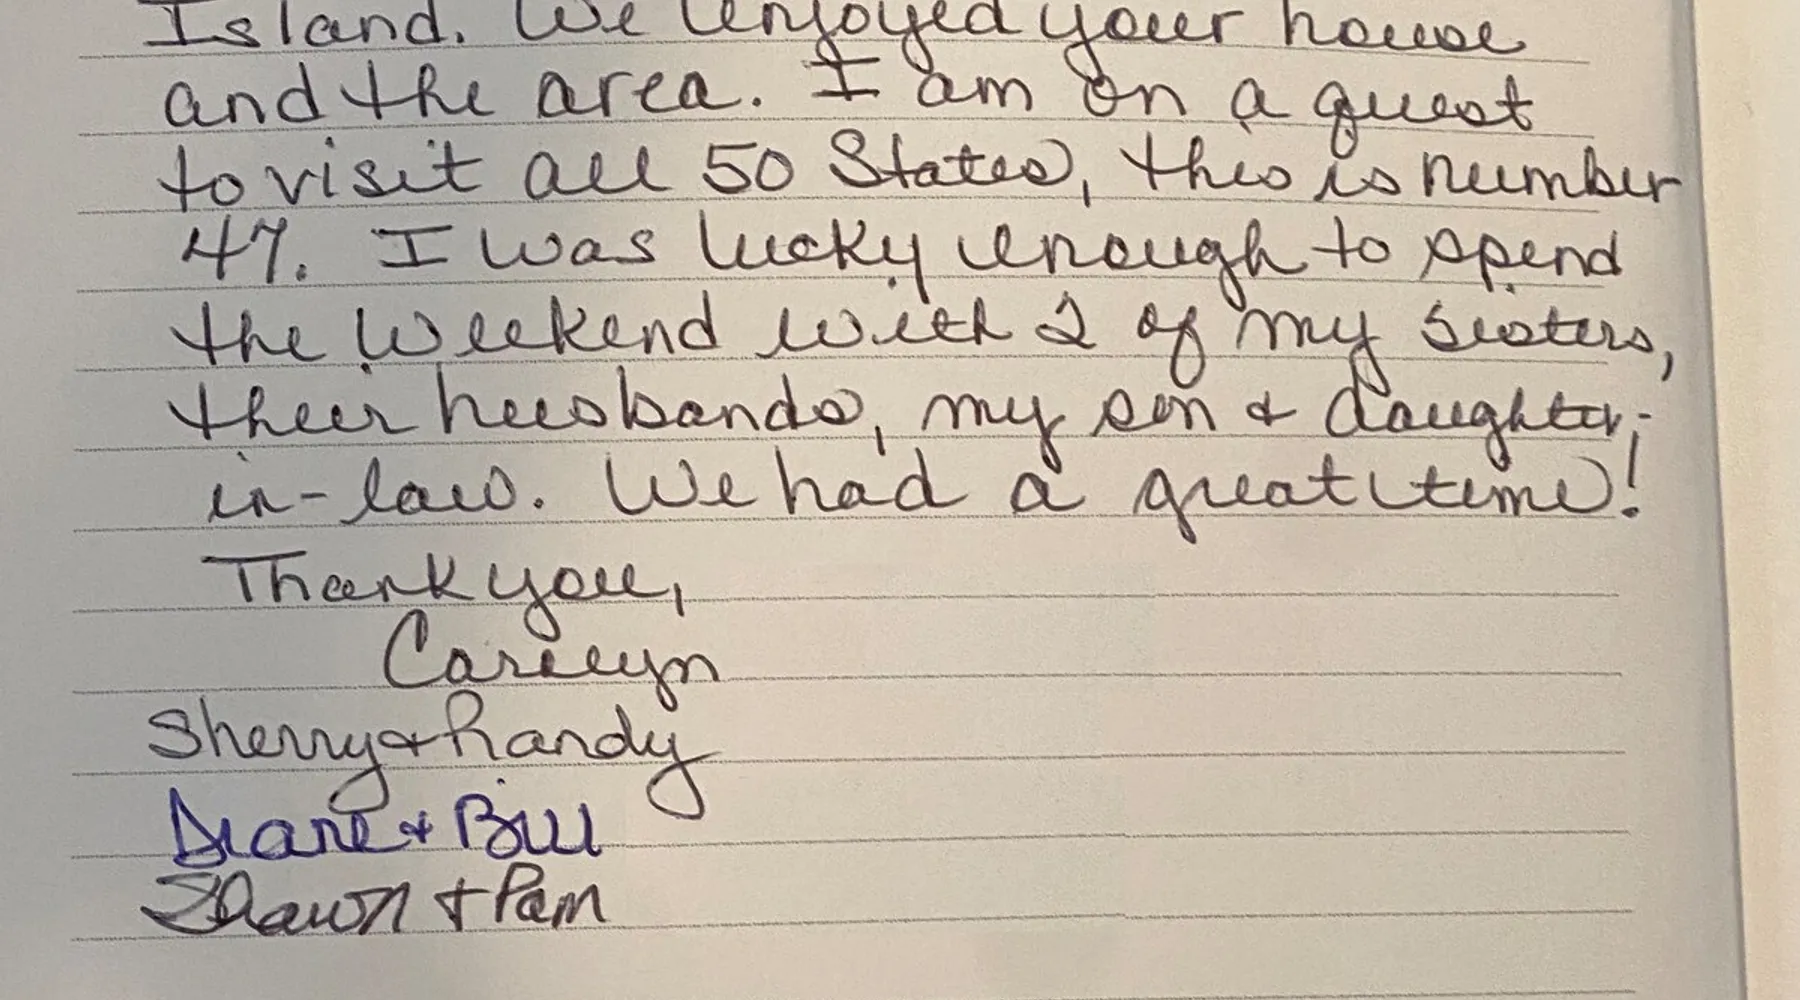 Island. We enjoyed your house
and the area. I am on a quest
to visit all 50 States, this is number
47. I was lucky enough to spend
the weekend with 2 of my sisters,
their husbands, my son & daughter-
in-law. We had a great time!
Thank you,
Carilyn
Sherry & Randy
Diane & Bill
Shawn & Pam